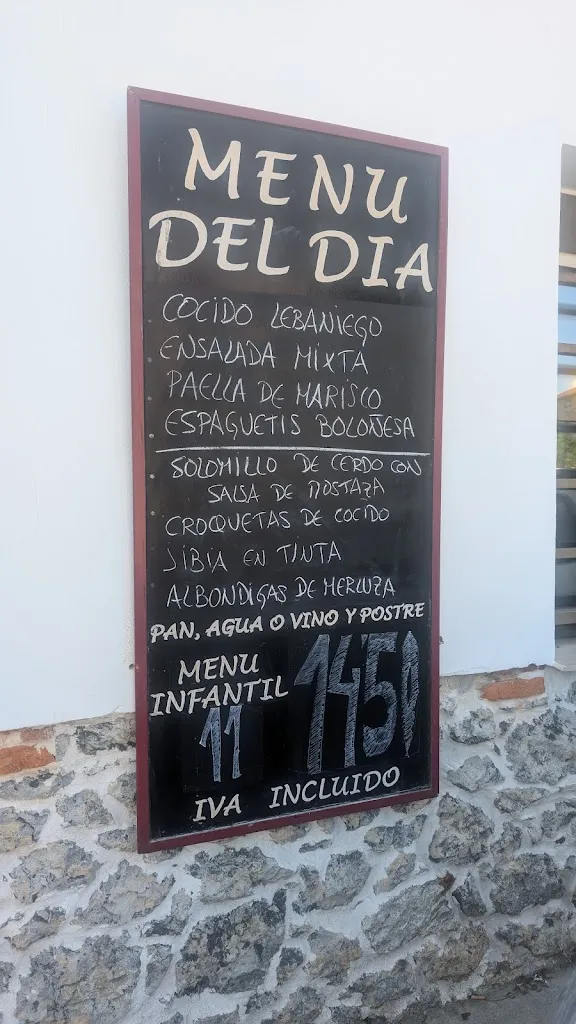 MENU
DEL DIA
COCIDO LEBANIEGO
ENSALADA MIXTA
PAELLA DE MARISCO
ESPAGUETIS BOLOÑESA
SOLOMILLO DE CERDO CON
SALSA DE MOSTAZA
CROQUETAS DE COCIDO
JIBIA EN TINTA
ALBONDIGAS DE MERLUZA
PAN, AGUA O VINO Y POSTRE
MENU
INFANTIL
11
14'50
IVA INCLUIDO